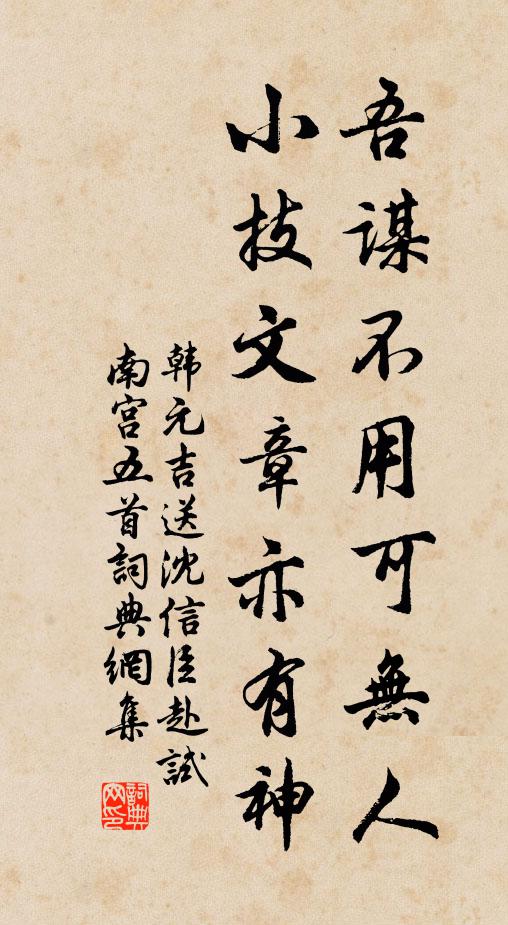 吾謀不用可無人
小技文章亦有神
韩元吉送沈信臣赴試
南宫五首詞典網集
詞典网印